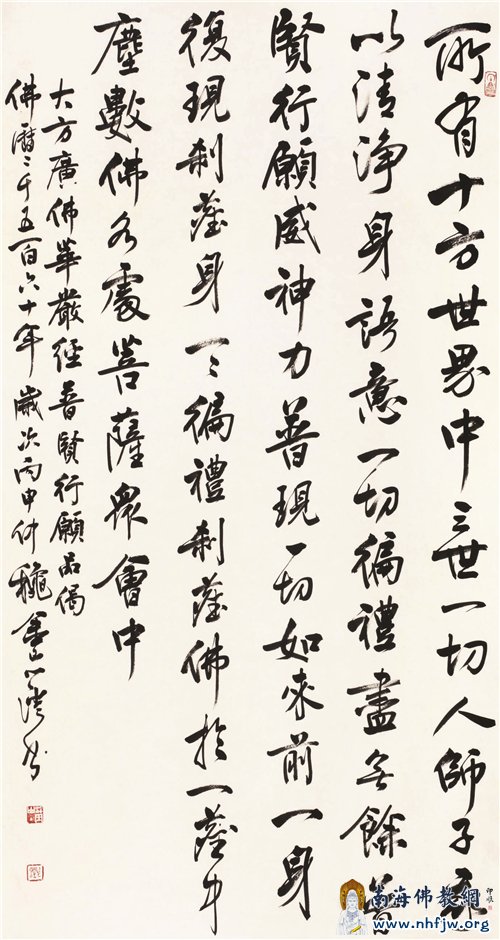 所有十方世界中三世一切人師子我
以清淨身語意一切徧禮盡无餘普
賢行願威神力普現一切如來前一身
復現剎塵身一〻徧禮剎塵佛於一塵中
塵數佛各處菩薩眾會中
大方廣佛華嚴經普賢行願品偈
佛曆二千五百六十年歲次丙申仲穐
南海佛教網
印順
www.nhfjw.org